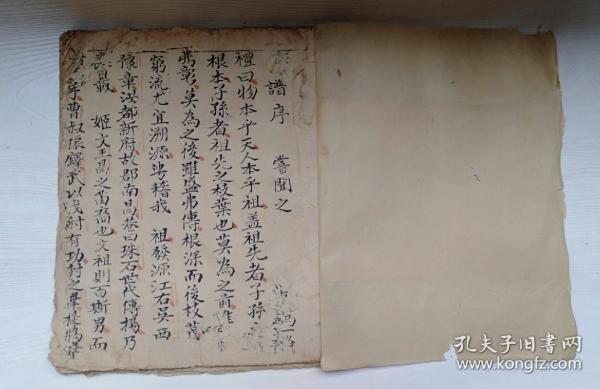 譜序 嘗聞之
禮曰物本乎天人本乎祖蓋祖先者子孫之
根本子孫者祖先之枝葉也莫為之前雖
弗彰莫為之後雖盛弗傳根深而後枝茂
窮流尤宜溯源粵稽我 祖發源江右吴西
豫章洪都新府故郡南昌巷曰珠石世代傳楊乃
姬文王昌之苗裔也文祖則百斯男而
曹叔振鐸武以伐紂有功封之
孔夫子旧书网
www.kongfz.com